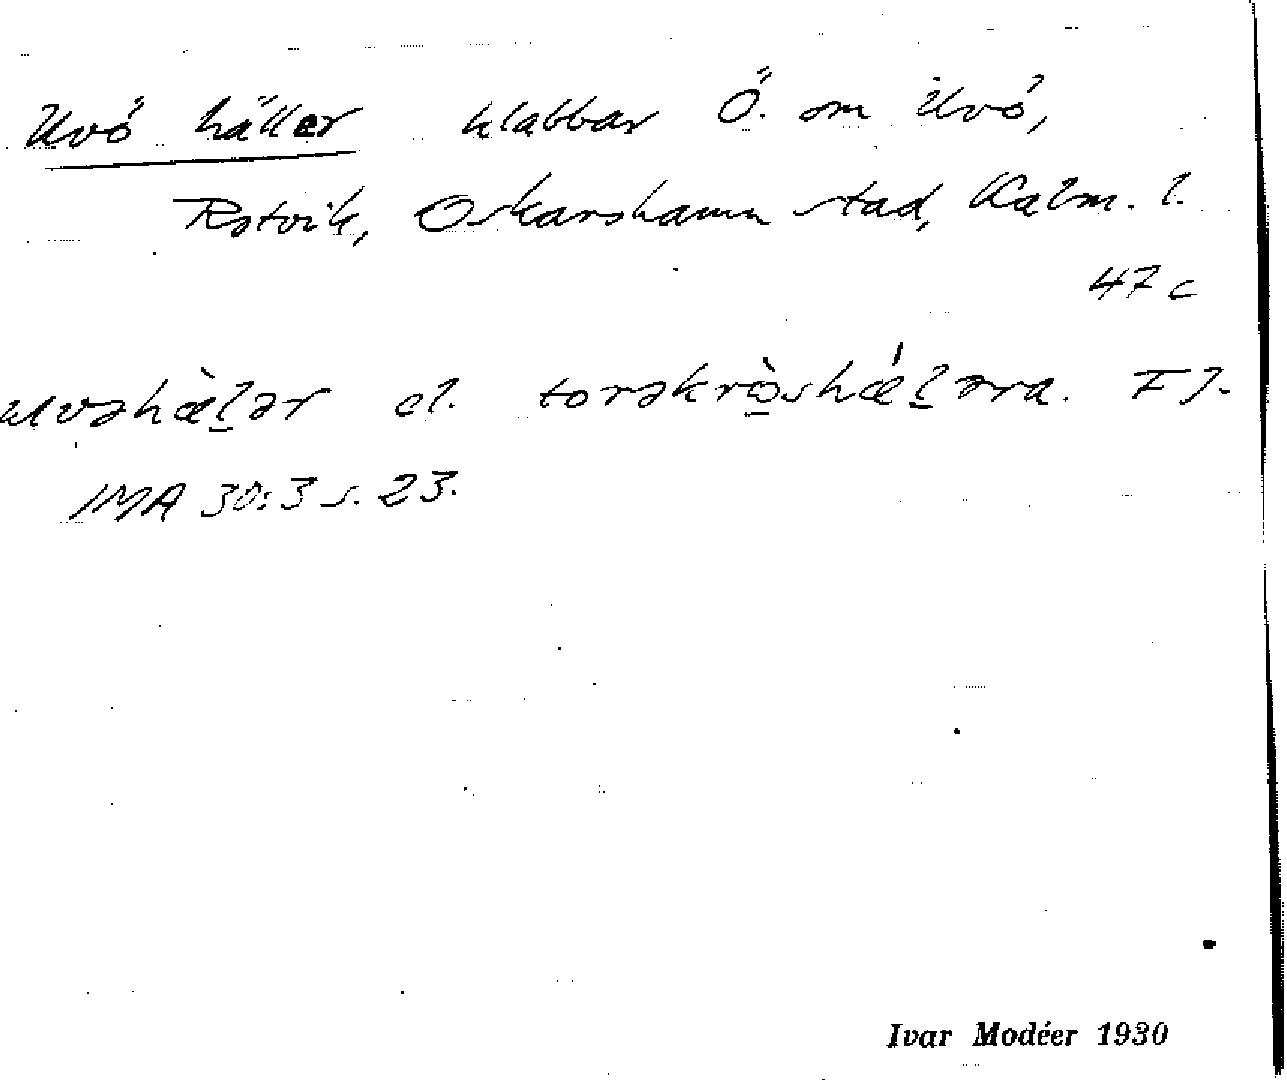 Uvö häller klabbar Ö. om Uvö,
Rotvik, Oskarshamn stad, Kalm. l.
47 c
uvəhæ̀l̠ər el. torəkrò̠shǽl̠əra. FJ.
IMA 30:3 s. 23.
Ivar Modéer 1930